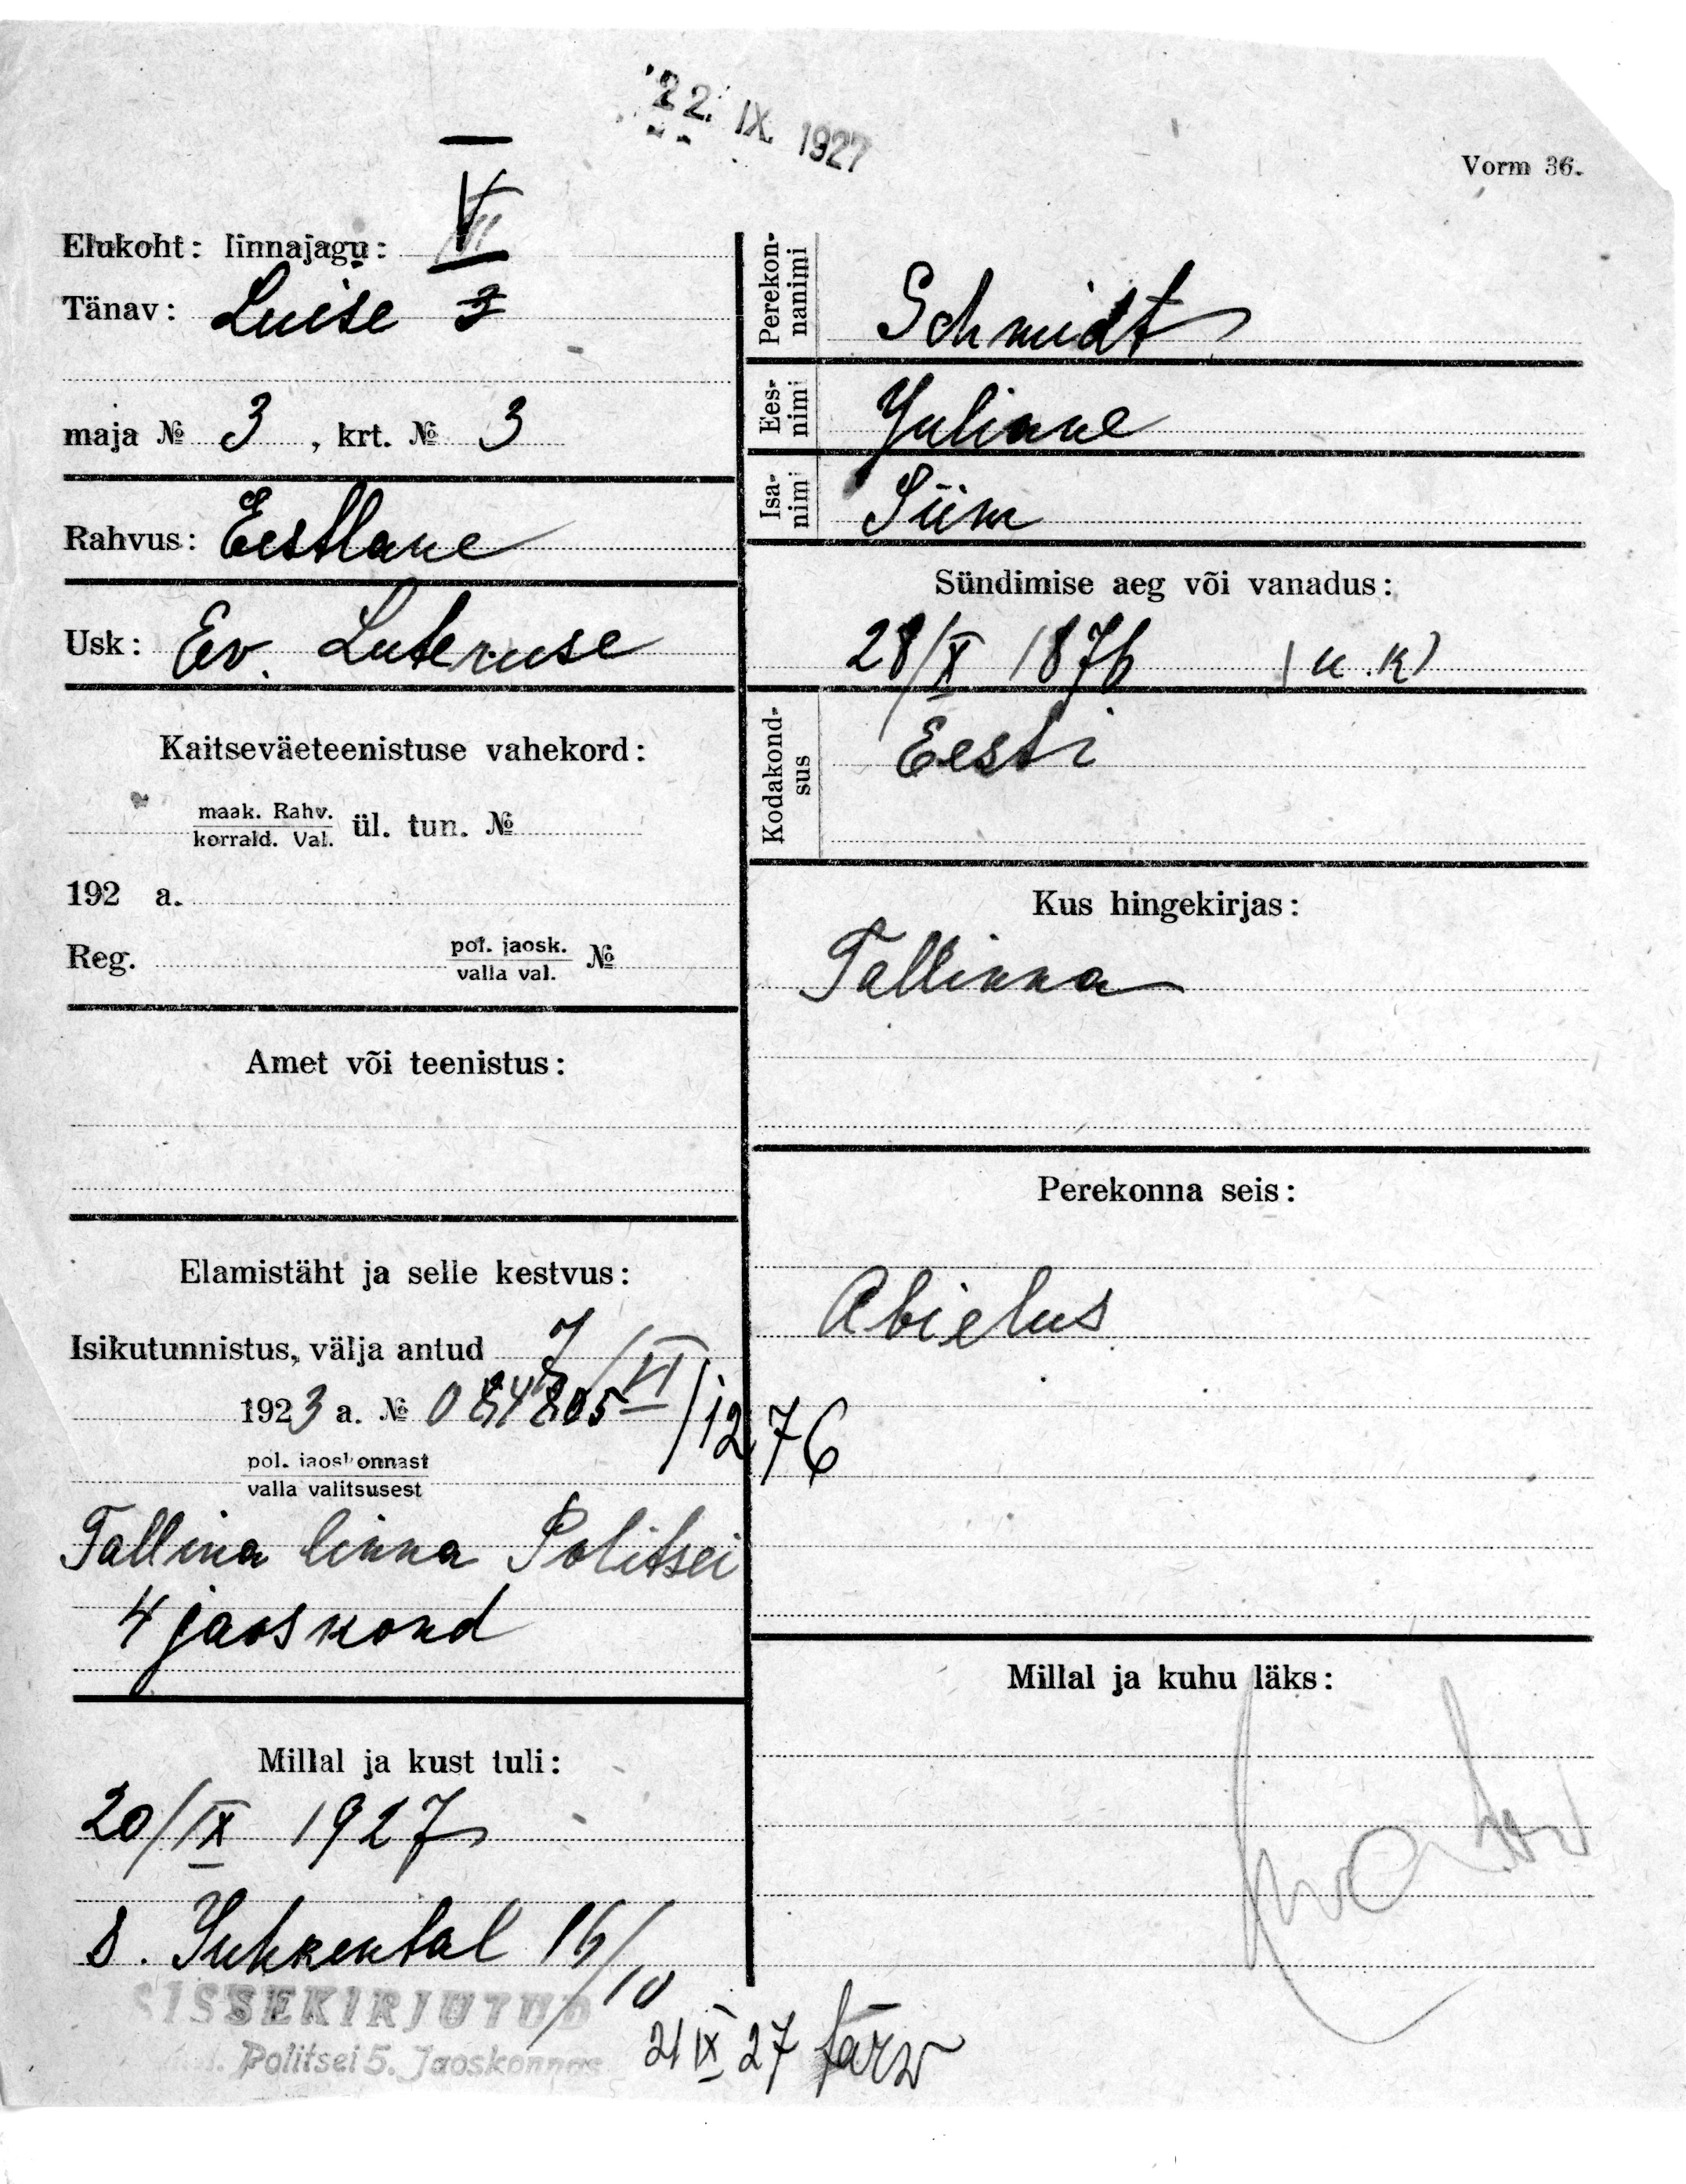 22. IX. 1927
Vorm 36.
Elukoht: linnajagu: V
Tänav: Luise 3
maja № 3, krt. № 3
Rahvus: Eestlane
Usk: Ev. Luteruse
Kaitseväeteenistuse vahekord:
maak. Rahv.
korrald. Val. ül. tun. №
192 a.
Reg. pol. jaosk.
valla val. №
Amet või teenistus:
Elamistäht ja selle kestvus:
Isikutunnistus, välja antud 7/VI
1923 a. № /1276
pol. jaoskonnast
valla valitsusest
Tallina linna Politsei
4 jaoskond
Millal ja kust tuli:
20/IX 1927
S. Juhkental 16/10
SISSEKIRJUTUD
Politsei 5. Jaoskonnas
21 IX 27 Särw
Perekonnanimi
Schmidt
Eesnimi
Juliane
Isanimi
Siim
Sündimise aeg või vanadus:
28/X 1876 (u.k)
Kodakondsus
Eesti
Kus hingekirjas:
Tallinna
Perekonna seis:
Abielus
Millal ja kuhu läks: